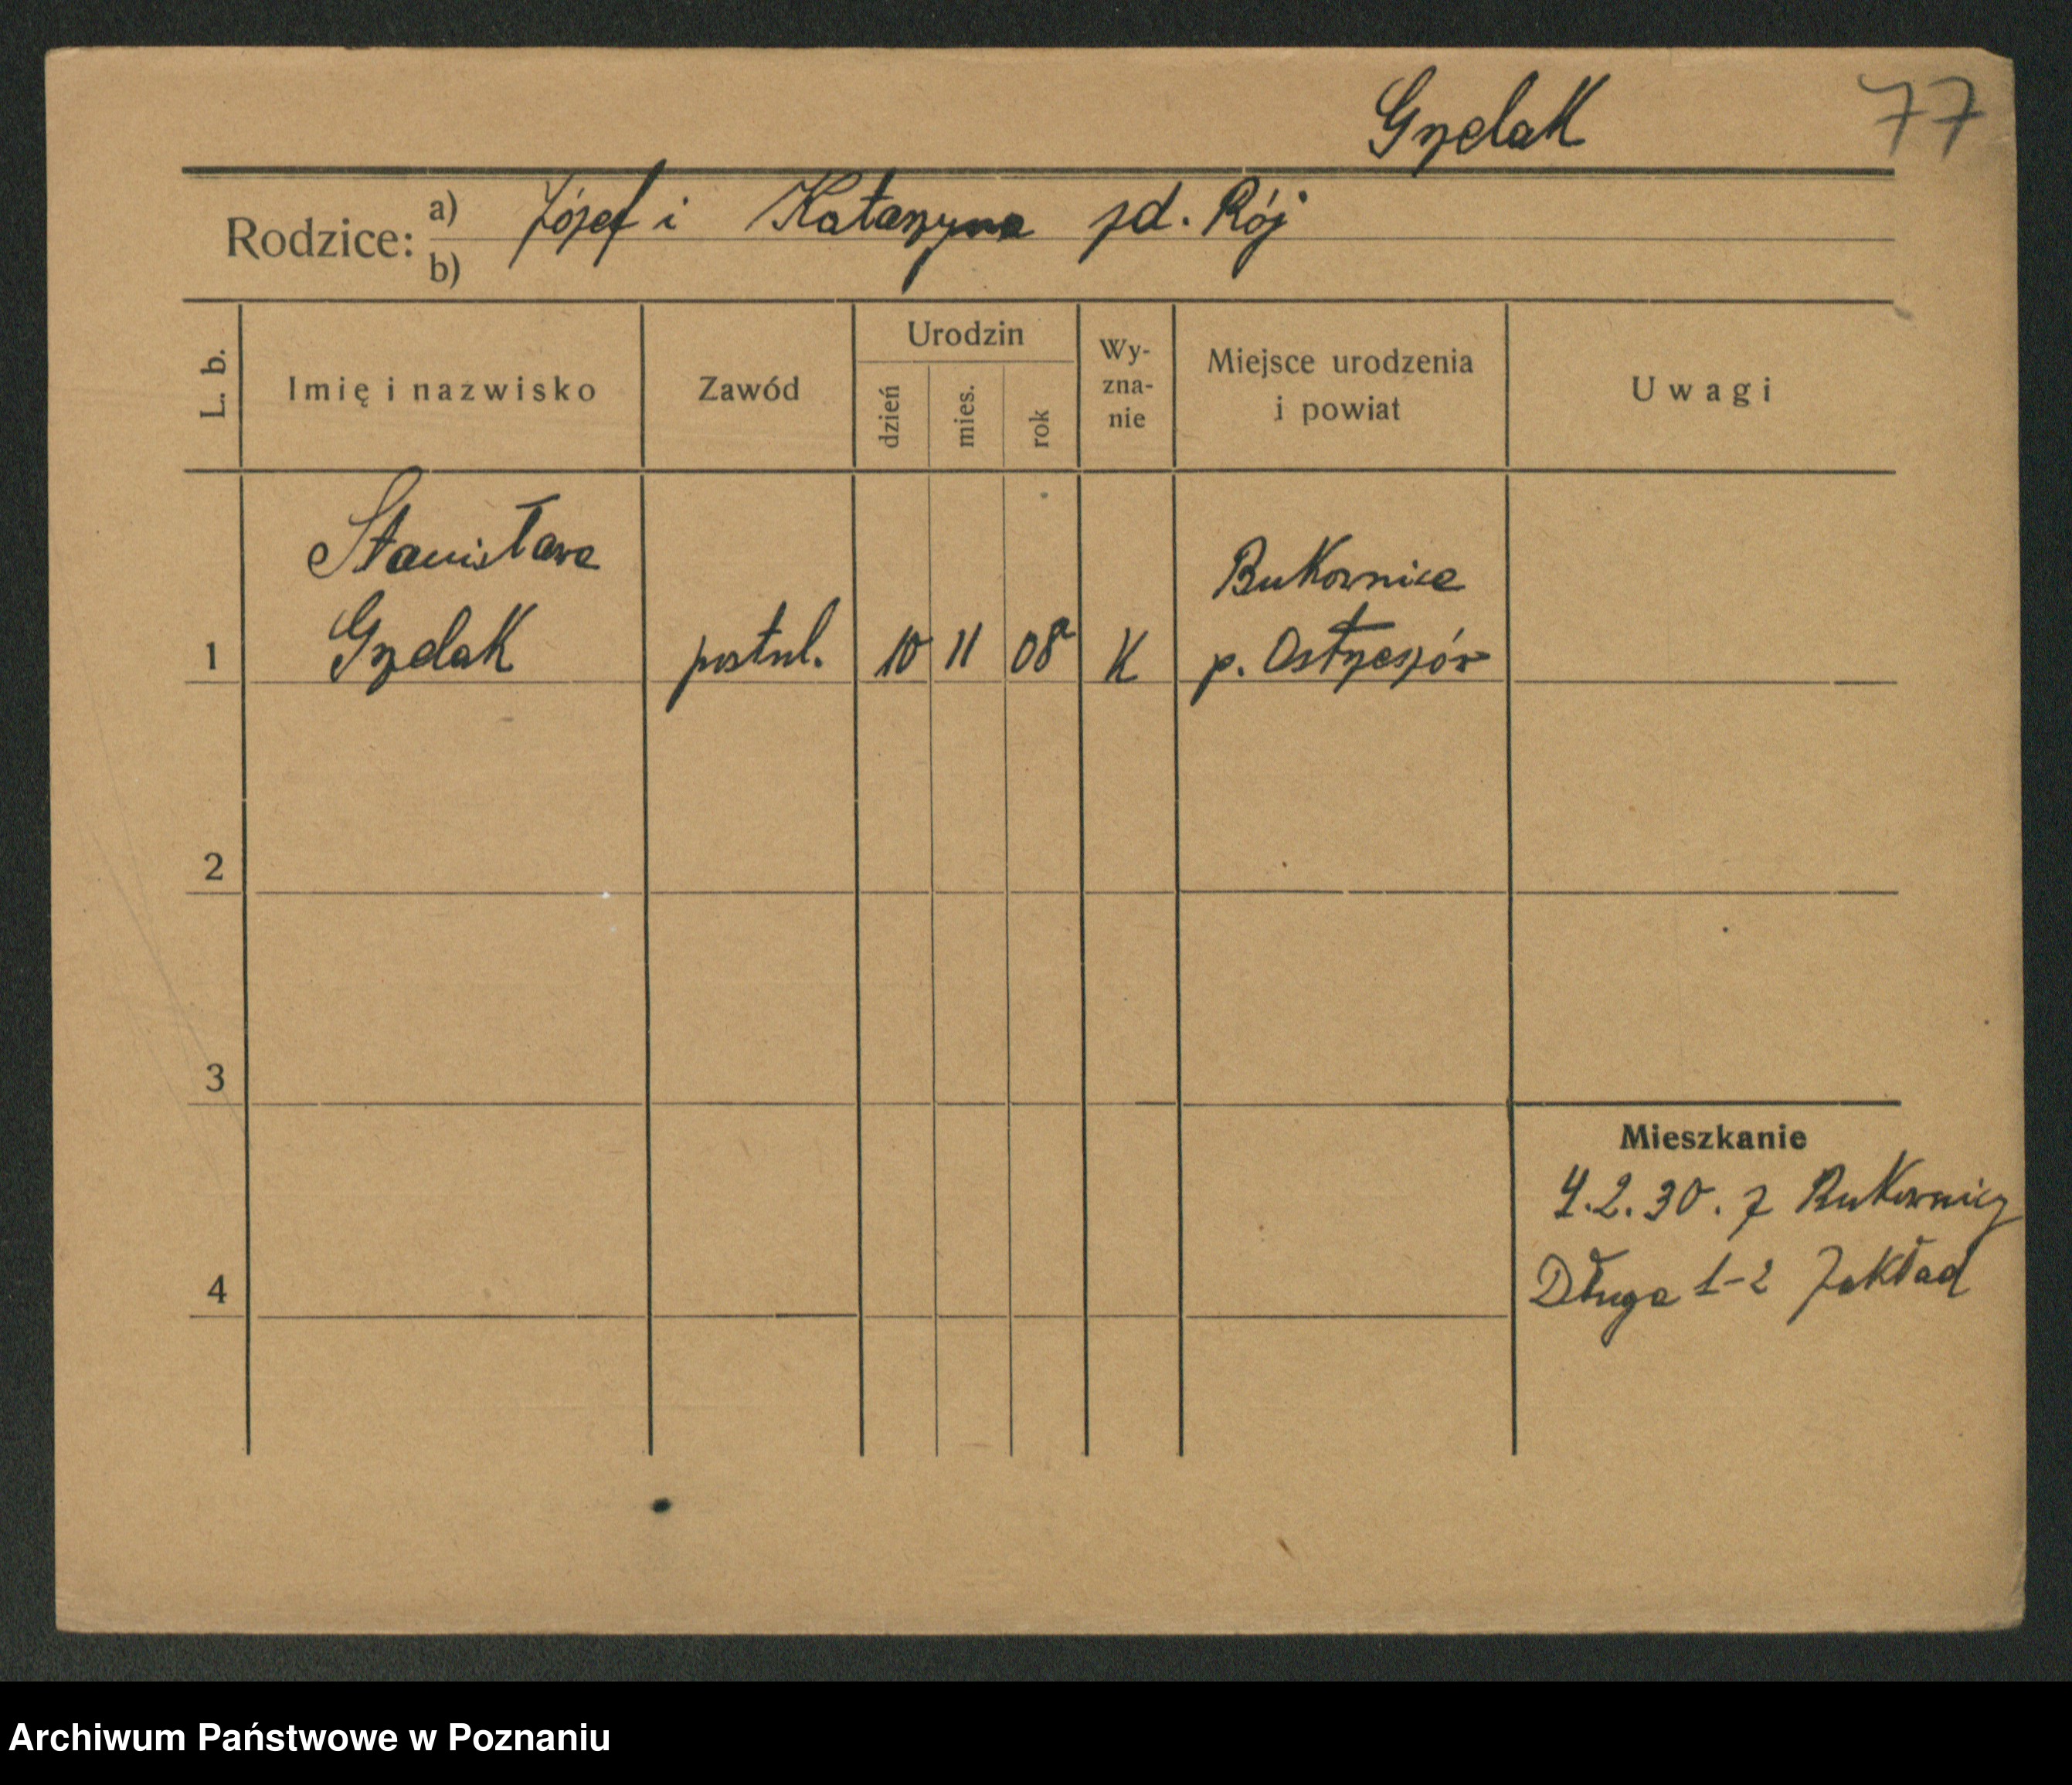 Grzelak 77
Rodzice: a) Józef i Katarzyna zd. Rój
b)
L. b. Imię i nazwisko Zawód Urodzin dzień mies. rok Wy-zna-nie Miejsce urodzenia i powiat Uwagi
Stanisława Bukownica
1 Grzelak postul. 10 11 08 K p. Ostrzeszów
2
3
Mieszkanie
4.2.30. z Bukownicy
4 Długa 1-2 Zakład
Archiwum Państwowe w Poznaniu